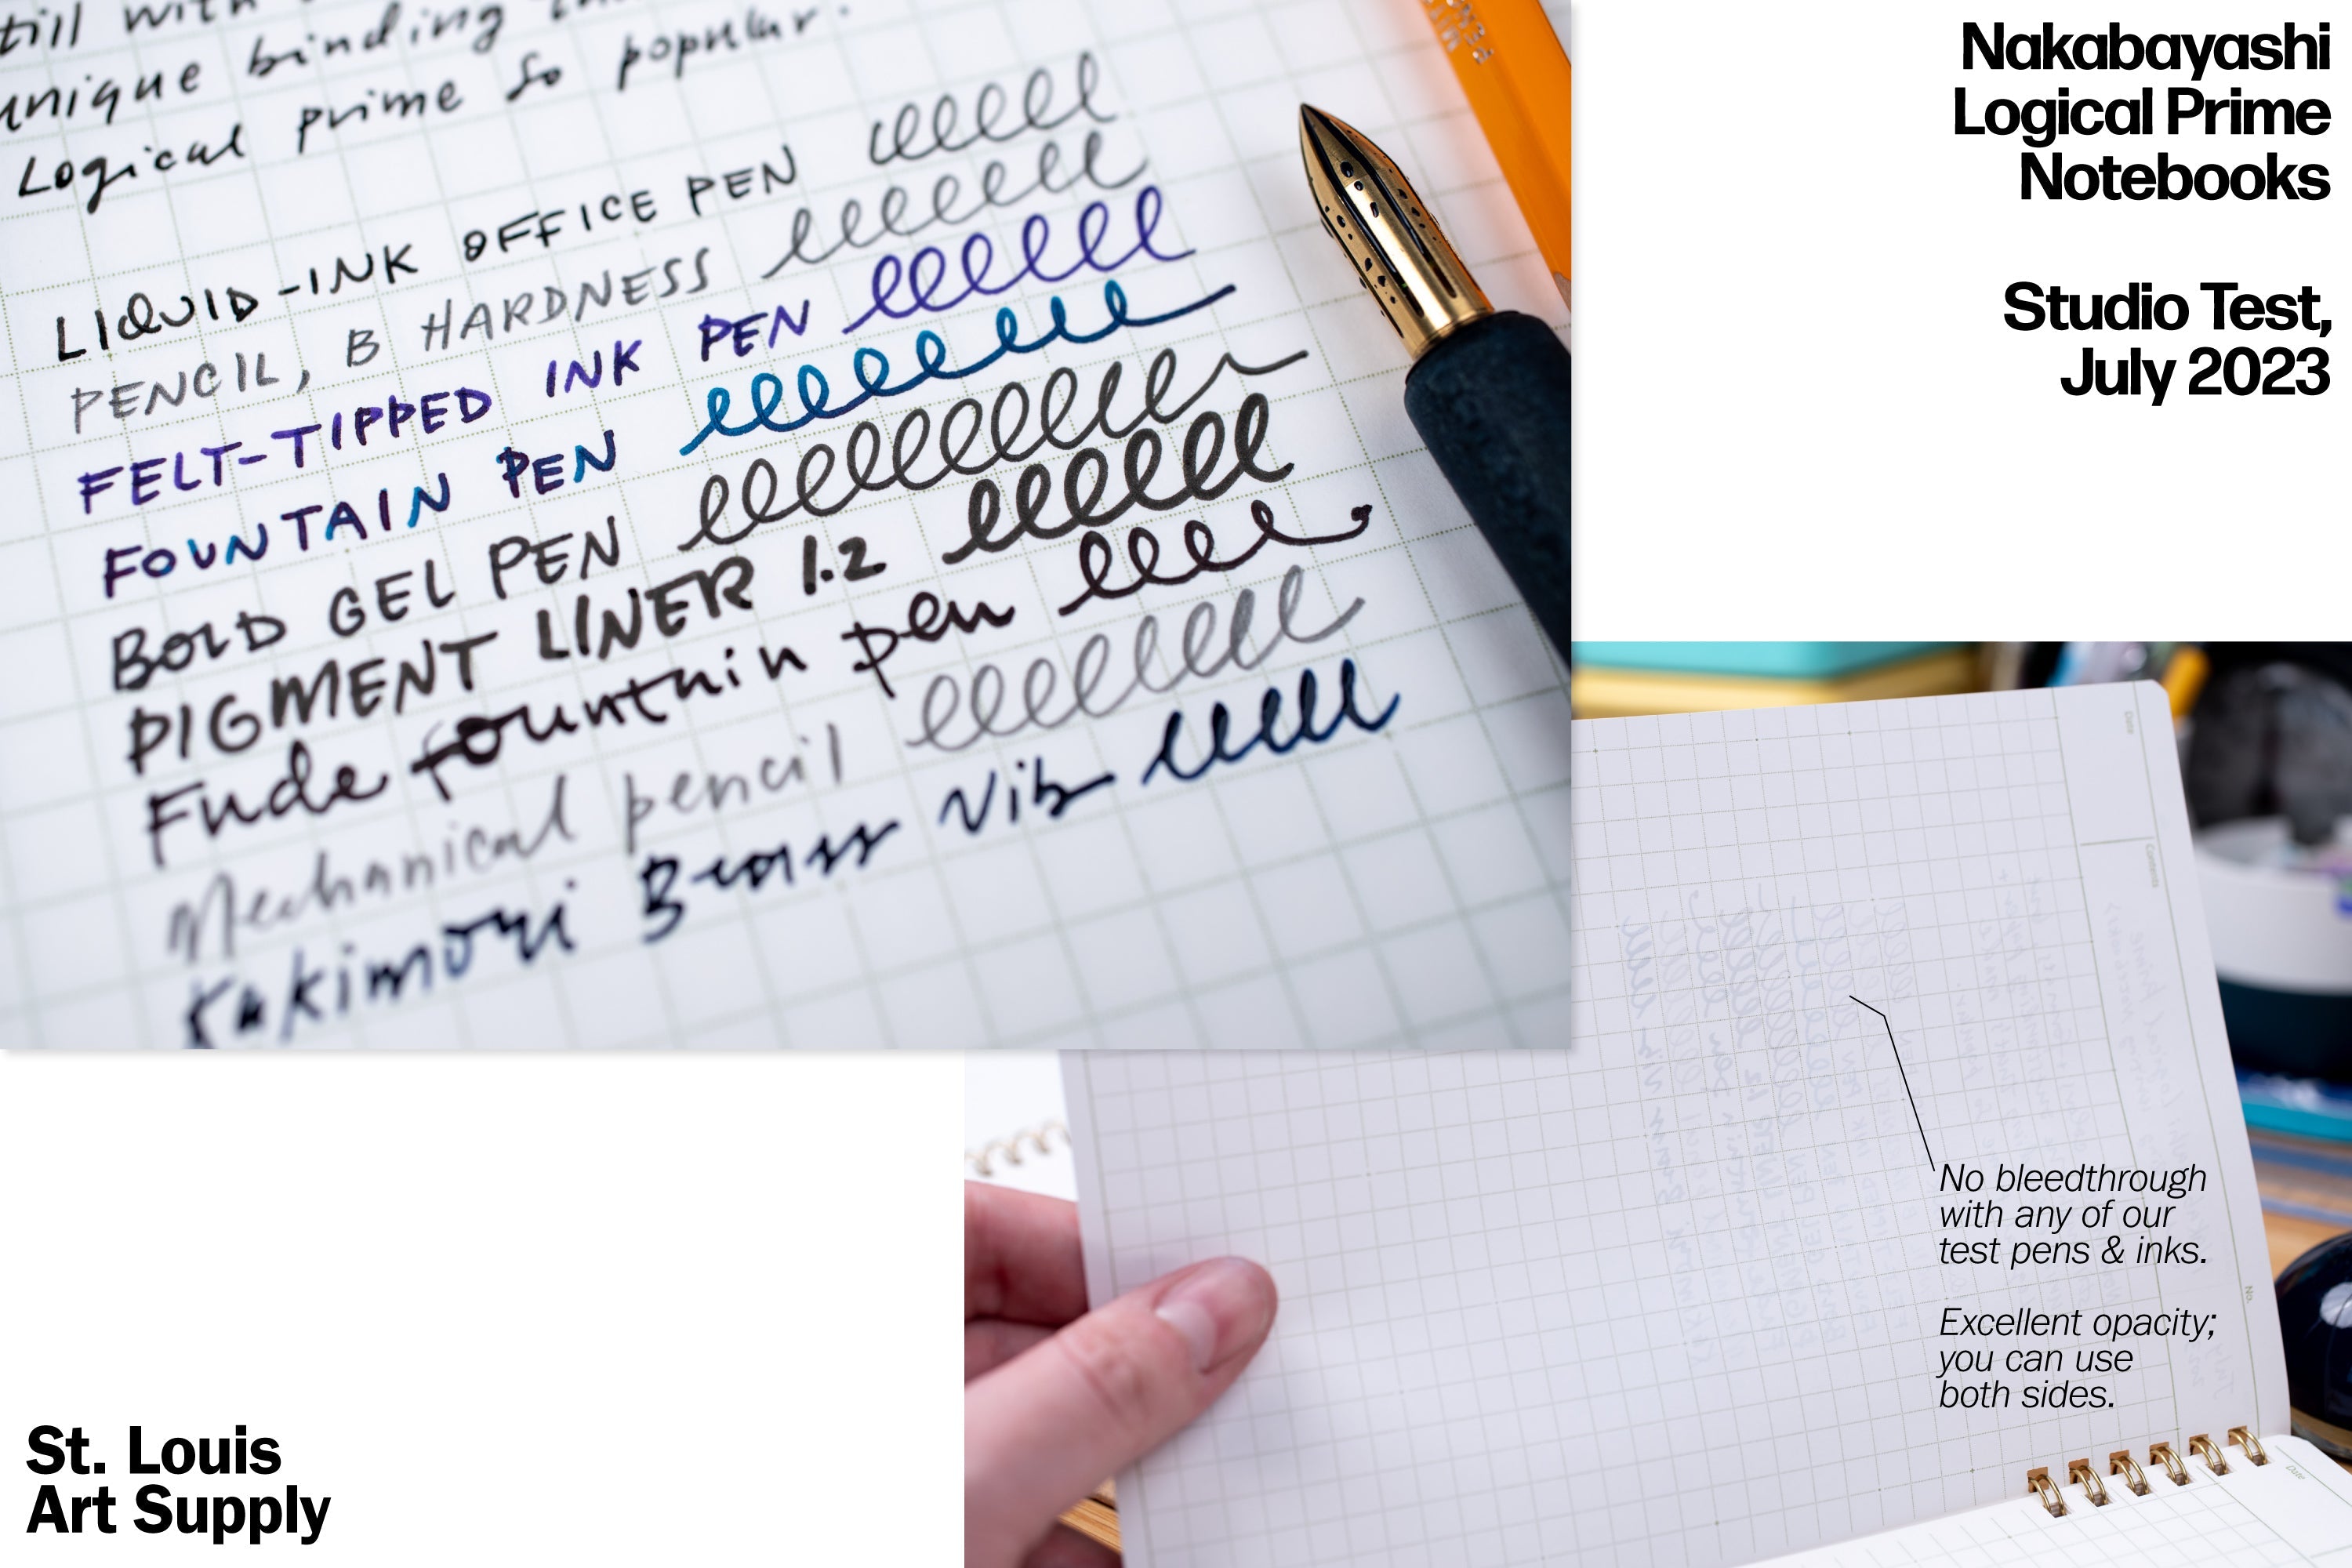 till with
unique binding
Logical prime so popular.
LIQUID-INK OFFICE PEN
PENCIL, B HARDNESS
FELT-TIPPED INK PEN
FOUNTAIN PEN
BOLD GEL PEN
PIGMENT LINER 1.2
Fude fountain pen
Mechanical pencil
Kakimori Brass Nib
Nakabayashi
Logical Prime
Notebooks
Studio Test,
July 2023
Date
Contents
No.
No bleedthrough
with any of our
test pens & inks.
Excellent opacity;
you can use
both sides.
Date
St. Louis
Art Supply